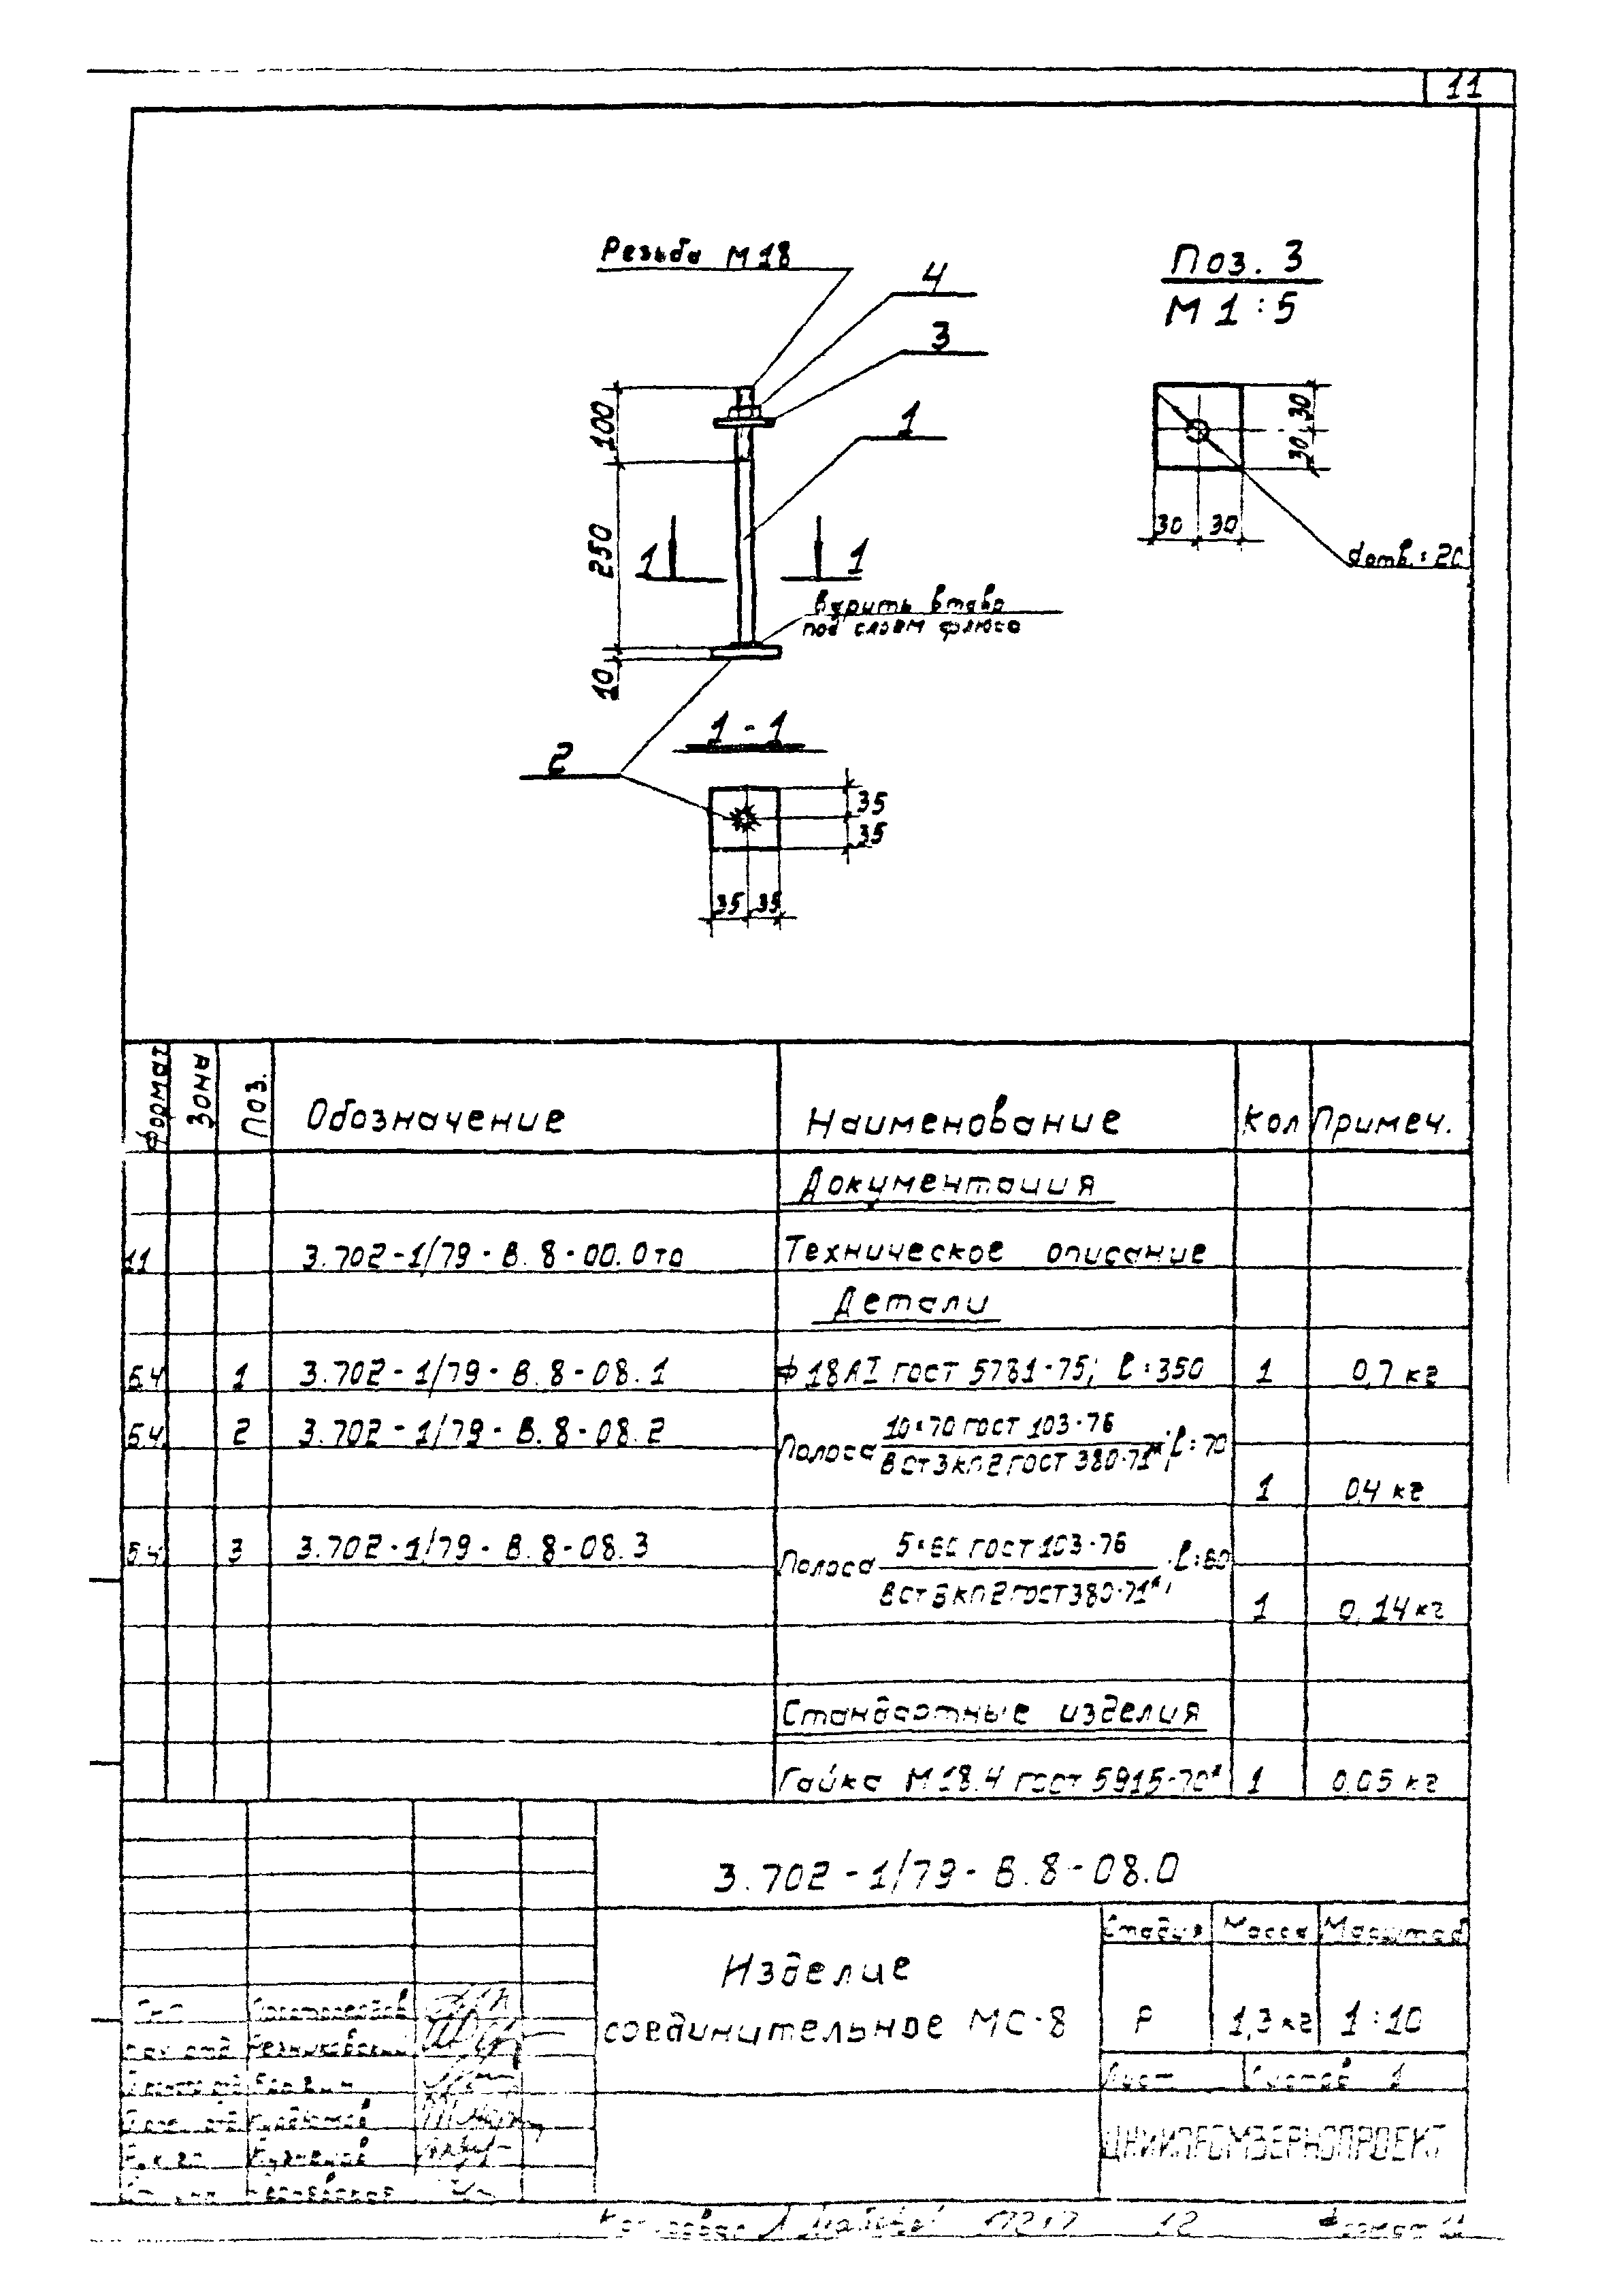 11
Резьба М18
4
3
1
Поз. 3
М 1:5
100
250
10
1 1
варить втавр
под слоем флюса
30
30
30 30
dотв.=20
2
1-1
35
35
35 35
Формат Зона Поз. Обозначение Наименование Кол Примеч.
Документация
11 3.702-1/79-В.8-00.0то Техническое описание
Детали
Б.Ч 1 3.702-1/79-В.8-08.1 ф18АI гост 5781-75; ℓ=350 1 0,7 кг
Б.Ч. 2 3.702-1/79-В.8-08.2 Полоса 10×70 гост 103-76
В Ст3кп2 гост 380-71*; ℓ=70
1 0,4 кг
Б.Ч. 3 3.702-1/79-В.8-08.3 Полоса 5×60 гост 103-76
В Ст3кп2 гост 380-71*; ℓ=60
1 0,14 кг
Стандартные изделия
Гайка М18.4 гост 5915-70* 1 0,05 кг
3.702-1/79-В.8-08.0
Изделие
соединительное МС-8
Стадия Масса Масштаб
Р 1,3 кг 1:10
Лист Листов 1
ЦНИИПРОМЗЕРНОПРОЕКТ
Гип
нач отд Резниковский
Кузнецов
Копировал 12 Формат 11